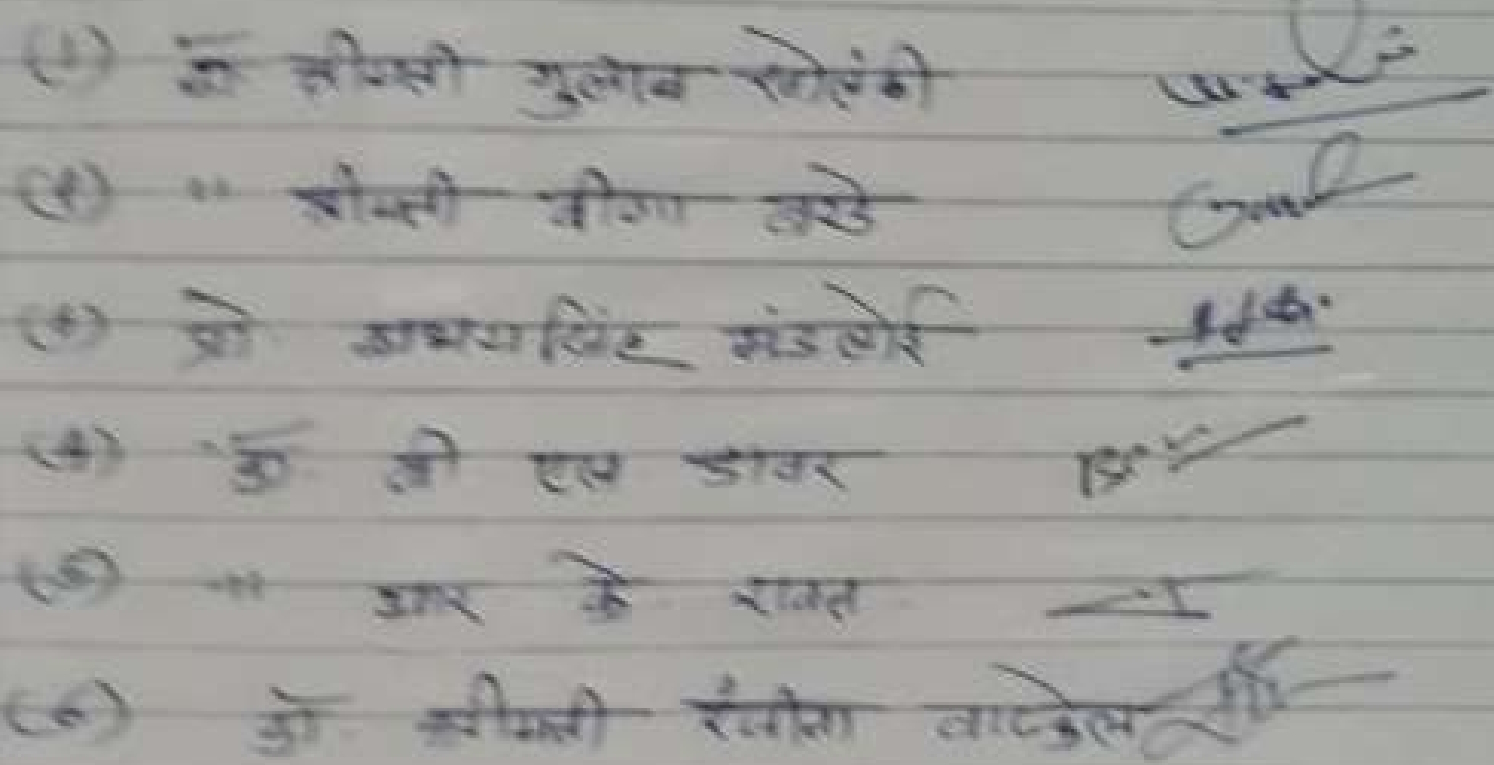 (1) डॉ श्रीमती गुलाब सोलंकी
(2) " श्रीमती वीणा बरडे
(3) प्रो. अभय सिंह मंडलोई
(4) डॉ. वी एल डावर
(5) " आर के रावत
(6) डॉ. श्रीमती रंजीता वाटकेल